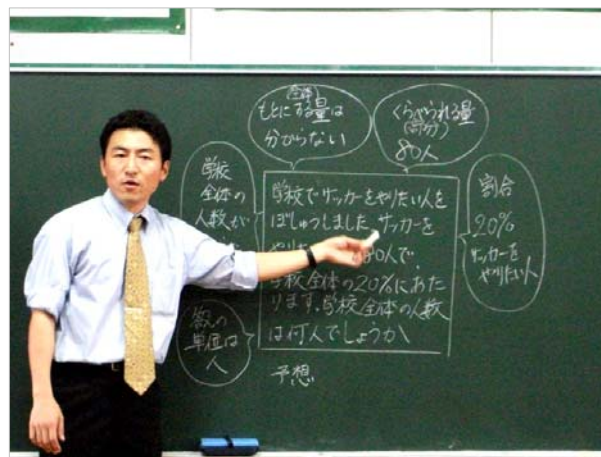 全体
もとにする量は
分からない
くらべられる量
(部分)
80人
学校
全体の
人数が
学校でサッカーをやりたい人を
ぼしゅうしました。サッカーを
80人で、
学校全体の20%にあた
ります。学校全体の人数
は何人でしょうか
割合
20%
サッカーを
やりたい人
数の
単位は
人
予想